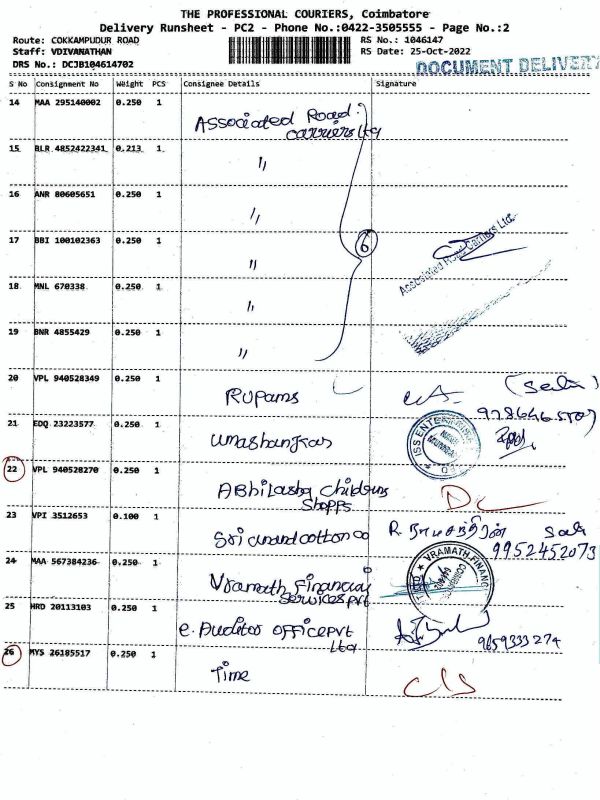 THE PROFESSIONAL COURIERS, Coimbatore
Delivery Runsheet - PC2 - Phone No.:0422-3505555 - Page No.:2
Route: COKKAMPUDUR ROAD RS No.: 1046147
Staff: VDIVANATHAN RS Date: 25-Oct-2022
DRS No.: DCJB104614702 DOCUMENT DELIVERY
S No Consignment No Weight PCS Consignee Details Signature
14 MAA 295140002 0.250 1 Associated Road
carriers Ltd
15 BLR 4852422341 0.213 1 "
16 ANR 80605651 0.250 1 "
6
17 BBI 100102363 0.250 1 "
Associated Road Carriers Ltd.
18 MNL 670338 0.250 1 "
19 BNR 4855429 0.250 1 "
20 VPL 940528349 0.250 1 Rupams
21 EDQ 23223577 0.250 1 umashangkar
ISS ENTERPRISES
22 VPL 940528270 0.250 1 Abhilasha Childrens
Shopps
DC
23 VPI 3512653 0.100 1 Sri anand cotton co R. ராமசந்திரன்
9952452073
24 MAA 567384236 0.250 1 Vramath Financial
Services Pvt
VRAMATH FINANC
25 HRD 20113103 0.250 1 e. Auditor office Pvt
Ltd
9659333274
26 MYS 26185517 0.250 1 Time
C/S